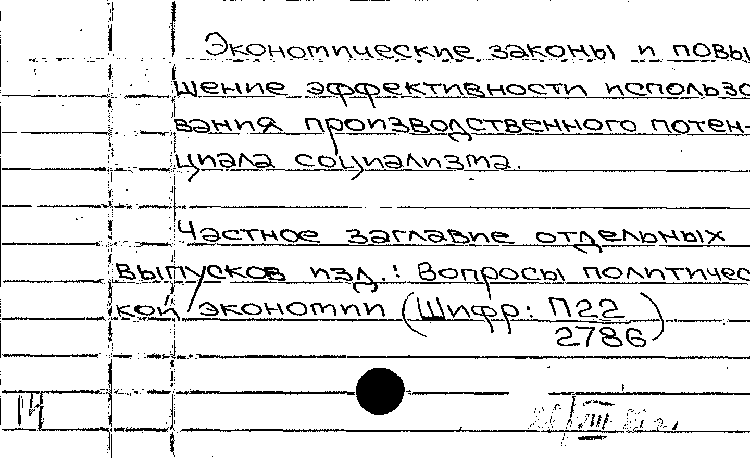 Экономические законы и повы
шение эффективности использо
вания производственного потен-
циала социализма.
Частное заглавие отдельных
выпусков изд.: Вопросы политичес
кой экономии (Шифр: П22
2786)
14